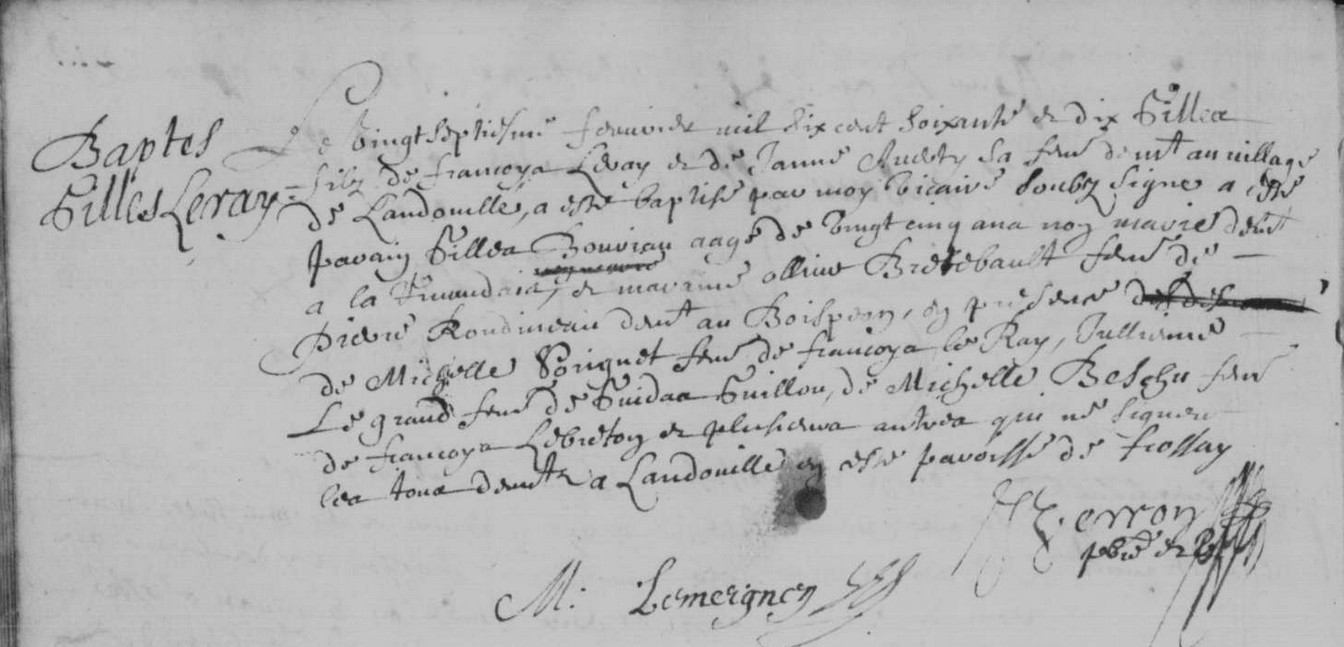 Baptes
Gilles Leray =
Le vingt septiesme feuvrier mil six cent soixante et dix Gilles
filz de francoys Leray et de Janne Audety sa fem demt au village
de Landouille, a esté baptisé par moy vicaire soubz signe a esté
parain Gilles Bouviau aagé de vingt cinq ans non marié demt
a la et maraine ollive Bretebault fem de
Pierre Rondineau demt au Boispean, en presence
de Michelle Poriguet fem de francoys le Ray, Jullienne
Le grand fem de Guidas Guillou, de Michelle Beschu fem
de francoys Lebreton et plusieurs autres qui ne signent
les tous demts a Landouille en este paroisse de frossay
Y. erron
pbre et
M. Lemeignen